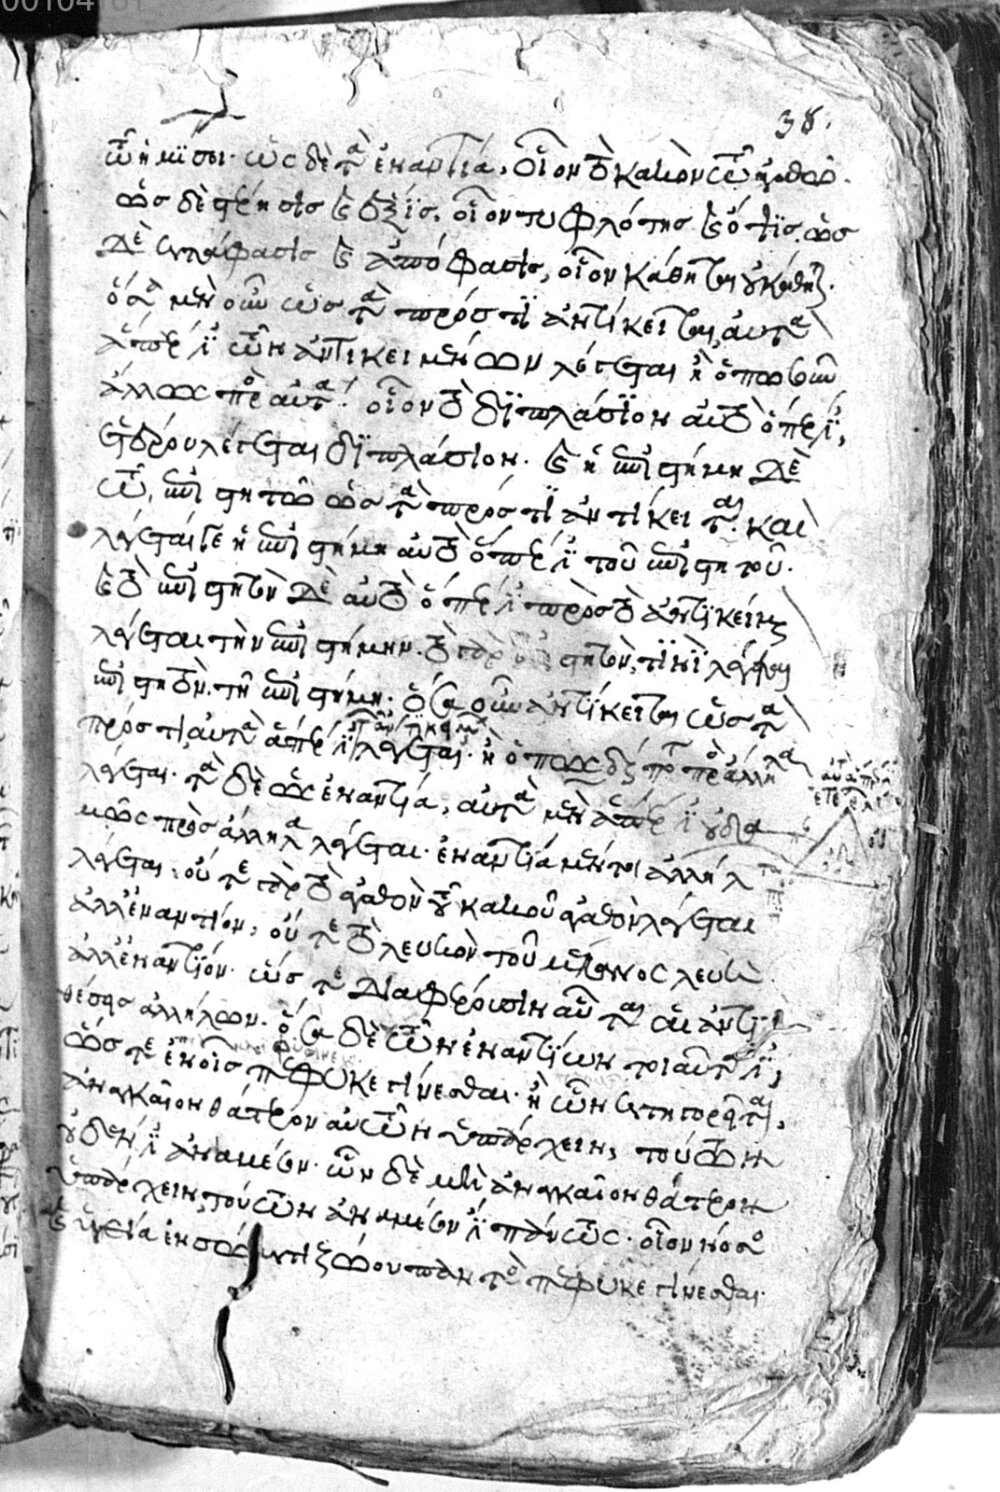 38.
τῷ ἡμίσει· ὡς δὲ τὰ ἐναντία, οἷον τὸ κακὸν τῷ ἀγαθῷ.
ὡς δὲ στέρησις καὶ ἕξις, οἷον τυφλότης καὶ ὄψις. ὡς
δὲ κατάφασις καὶ ἀπόφασις, οἷον κάθηται οὐ κάθηται.
ὅσα μὲν οὖν ὡς τὰ πρός τι ἀντίκειται, αὐτὰ
ἅπερ ἐστὶ τῶν ἀντικειμένων λέγεται ἢ ὁπωσοῦν
ἄλλως πρὸς αὐτά. οἷον τὸ διπλάσιον αὐτὸ ὅπερ ἐστίν,
ἑτέρου λέγεται διπλάσιον. καὶ ἡ ἐπιστήμη δὲ
τῷ ἐπιστητῷ ὡς τὰ πρός τι ἀντίκειται. καὶ
λέγεταί γε ἡ ἐπιστήμη αὐτὸ ὅπερ ἐστὶ τοῦ ἐπιστητοῦ.
καὶ τὸ ἐπιστητὸν δὲ αὐτὸ ὅπερ ἐστὶ πρὸς τὸ ἀντικείμενον
λέγεται τὴν ἐπιστήμην. τὸ γὰρ ἐπιστητὸν, τινὶ λέγεται
ἐπιστητὸν. τῇ ἐπιστήμῃ. ὅσα οὖν ἀντίκειται ὡς τὰ
πρός τι, αὐτὰ ἅπερ ἐστὶ τῶν ἀντικειμένων λέγεται. ἢ ὁπωσδήποτε πρὸς ἄλληλα
λέγεται. τὰ δὲ ὡς ἐναντία, αὐτὰ μὲν ἅπερ ἐστὶν οὐδα
μῶς πρὸς ἄλληλα λέγεται. ἐναντία μέντοι ἀλλήλων
λέγεται. οὔτε γὰρ τὸ ἀγαθὸν τοῦ κακοῦ ἀγαθὸν λέγεται
ἀλλ' ἐναντίον, οὔτε τὸ λευκὸν τοῦ μέλανος λευκὸν
ἀλλ' ἐναντίον. ὥστε διαφέρουσιν αὗται αἱ ἀντι
θέσεις ἀλλήλων. ὅσα δὲ τῶν ἐναντίων τοιαῦτά ἐστιν,
ὥστε ἐν οἷς πέφυκε γίνεσθαι. ἢ ὧν κατηγορεῖται,
ἀναγκαῖον θάτερον αὐτῶν ὑπάρχειν, τούτων
οὐδέν ἐστιν ἀνάμεσον. ὧν δὲ μὴ ἀναγκαῖον θάτερον
ὑπάρχειν, τούτων ἀνάμεσόν ἐστι πάντως. οἷον νόσος
καὶ ὑγεία ἐν σώματι ζώου πέφυκε γίνεσθαι.